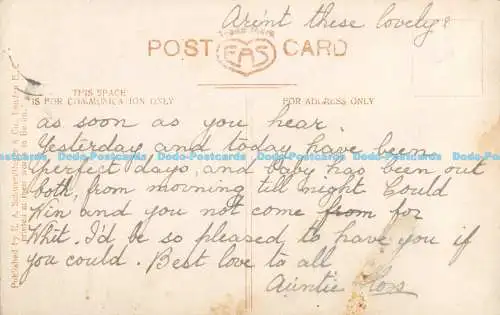 Arint these lovely?
TRADE MARK
POST CARD
EAS
THIS SPACE
IS FOR COMMUNICATION ONLY
FOR ADDRESS ONLY
as soon as you hear.
Yesterday and today have been
perfect days, and baby has been out
both, from morning till night Could
Win and you not come from for
Whit. I'd be so pleased to have you if
you could. Best love to all
Auntie
Published by E. A. & Co., London E.C.
Dodo-Postcards Dodo-Postcards Dodo-Postcards Dodo-Postcards Dodo-Postcards